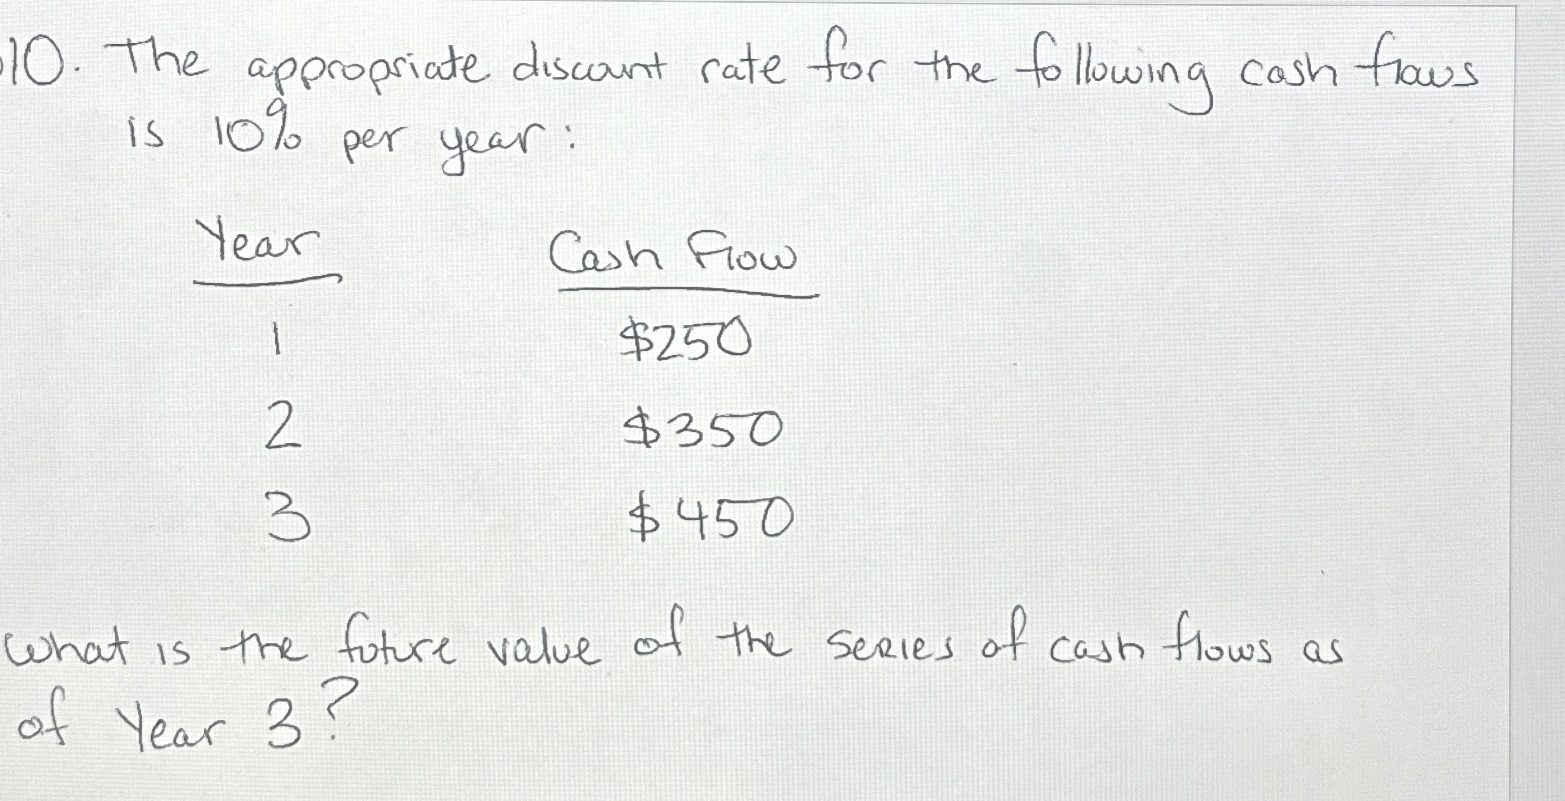 10. The appropriate discount rate for the following cash flows
is 10% per year:
Year Cash Flow
1 $250
2 $350
3 $450
What is the future value of the series of cash flows as
of Year 3?